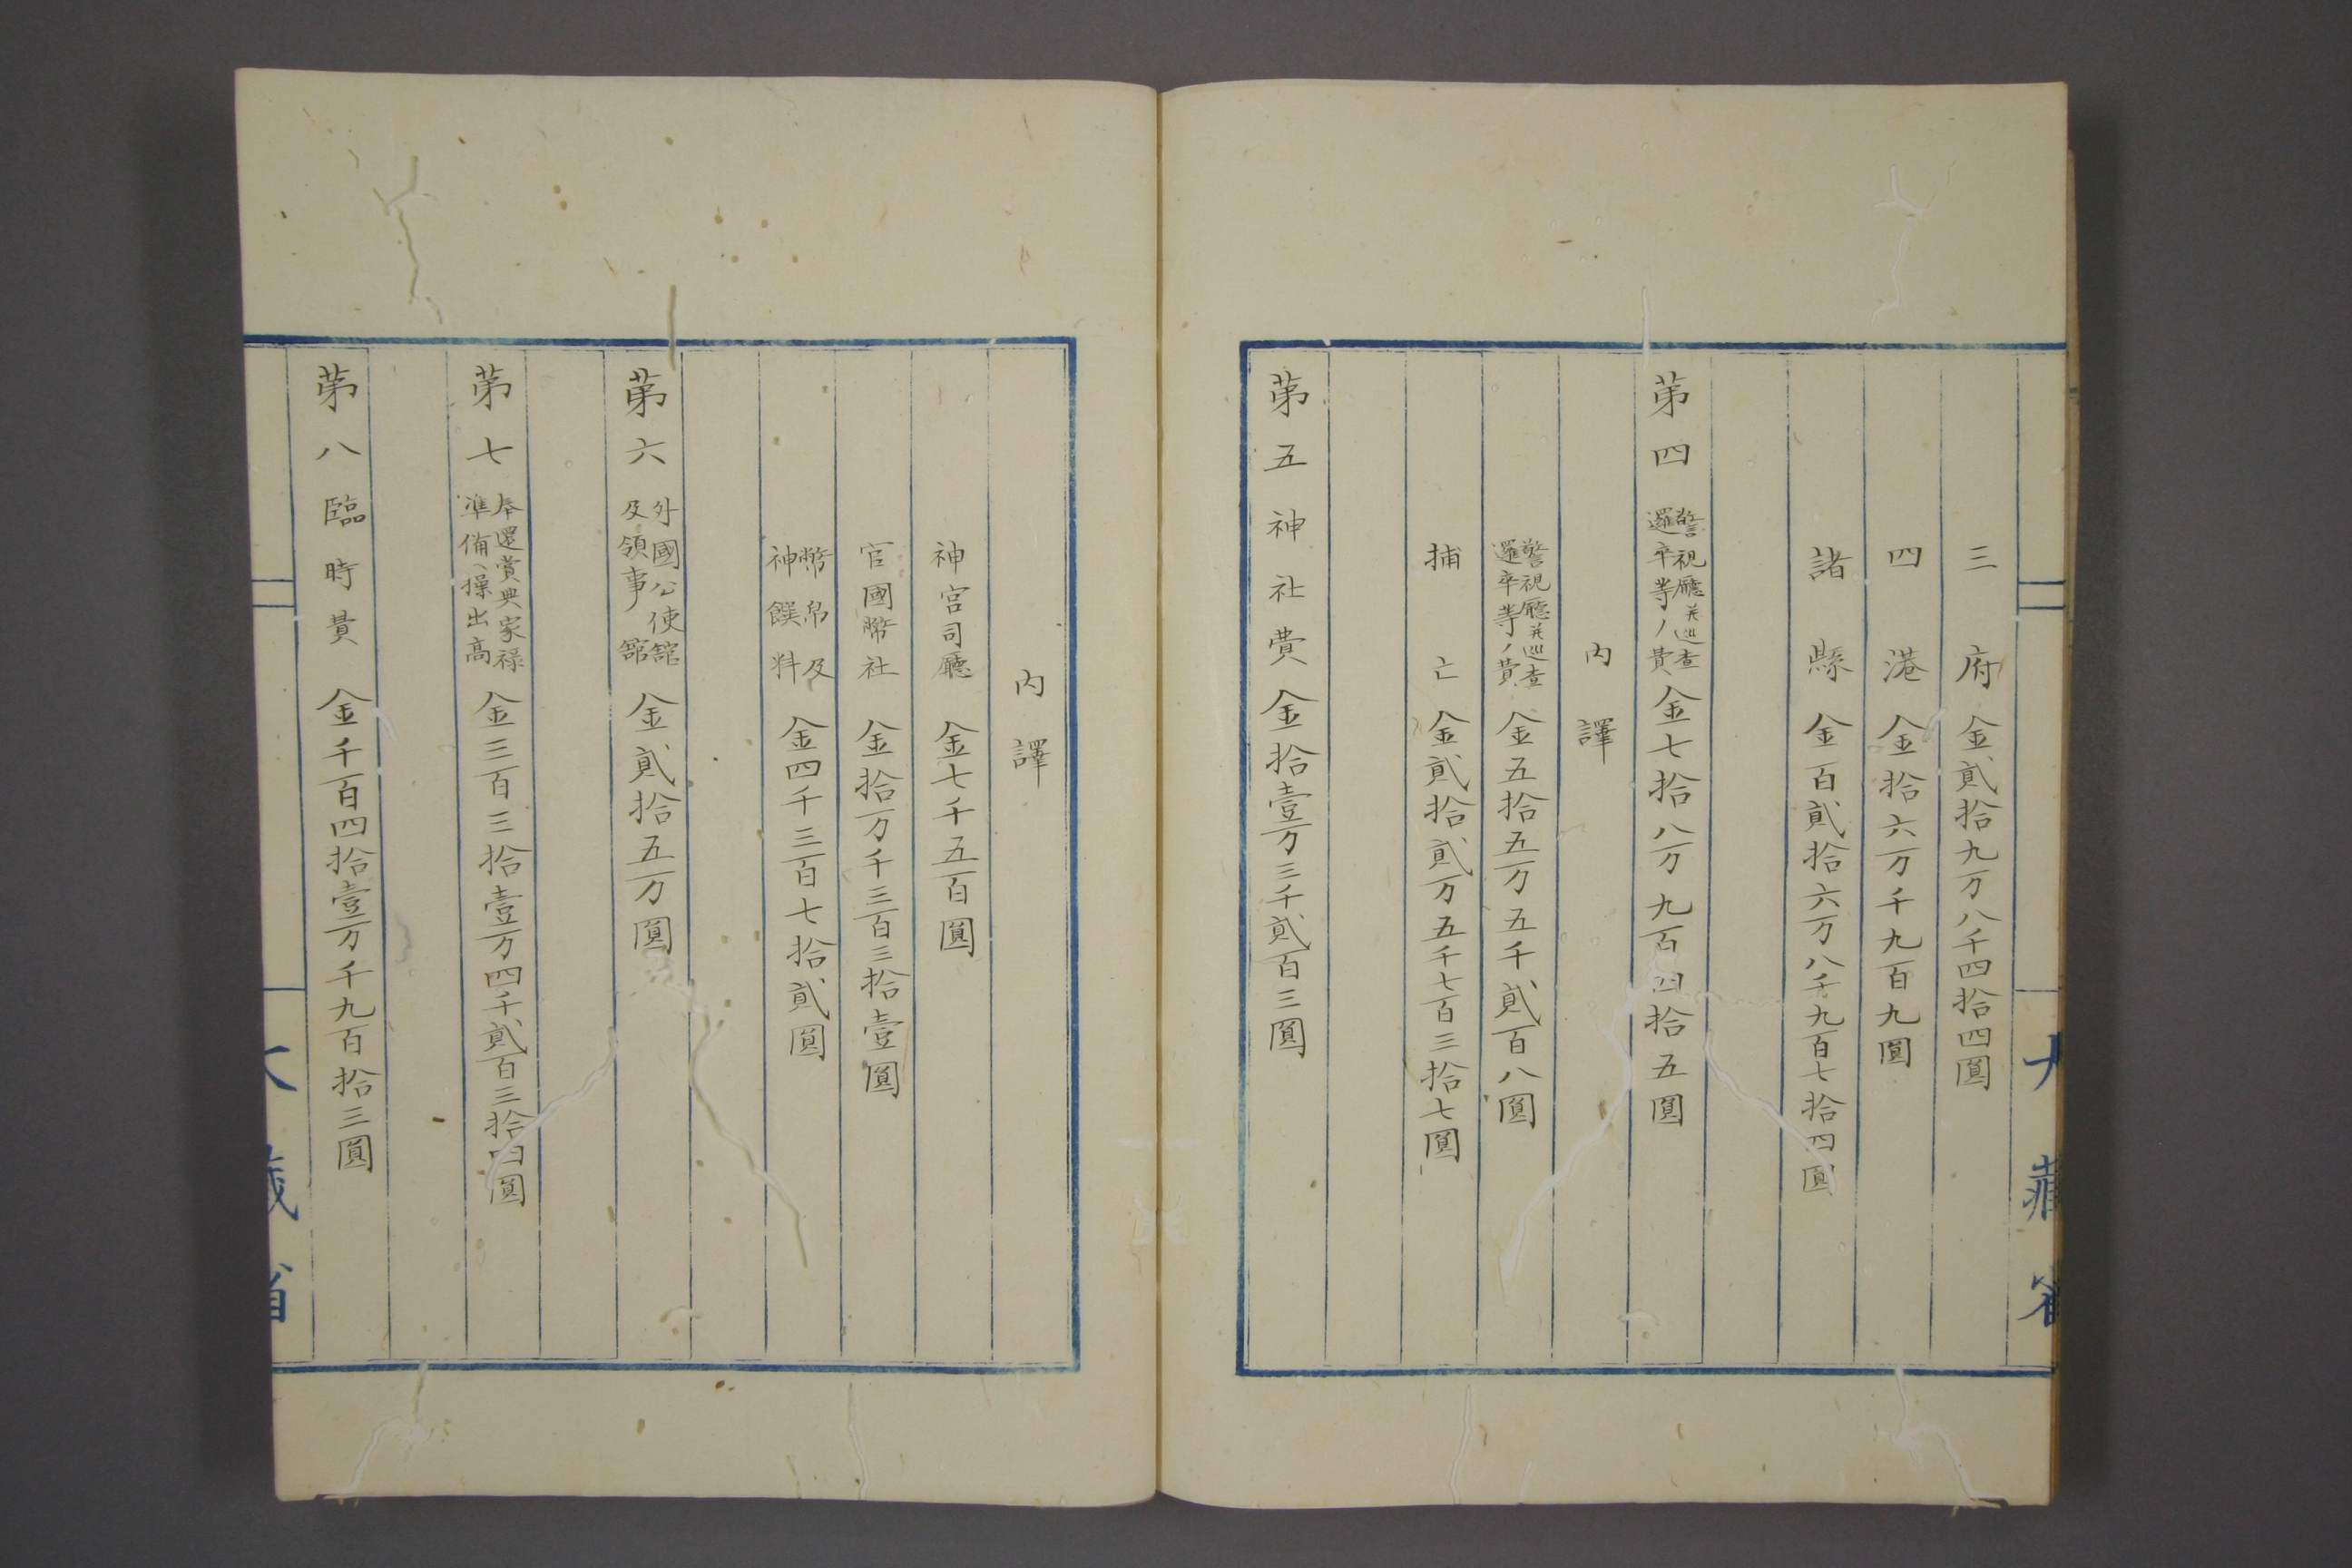 三府 金貳拾九万八千四拾四圓
四港 金拾六万千九百九圓
諸縣 金百貳拾六万八千九百七拾四圓
第四 警視廳并巡查邏卒等ノ費 金七拾八万九百四拾五圓
内譯
警視廳并巡查邏卒等ノ費 金五拾五万五千貳百八圓
捕亡 金貳拾貳万五千七百三拾七圓
第五神社費 金拾壹万三千貳百三圓
大藏省
内譯
神宮司廳 金七千五百圓
官國幣社 金拾万千三百三拾壹圓
幣帛及神饌料 金四千三百七拾貳圓
第六 外國公使舘及領事舘 金貳拾五万圓
第七 奉還賞典家禄準備ヘ操出高 金三百三拾壹万四千貳百三拾四圓
第八臨時費 金千百四拾壹万千九百拾三圓
大藏省